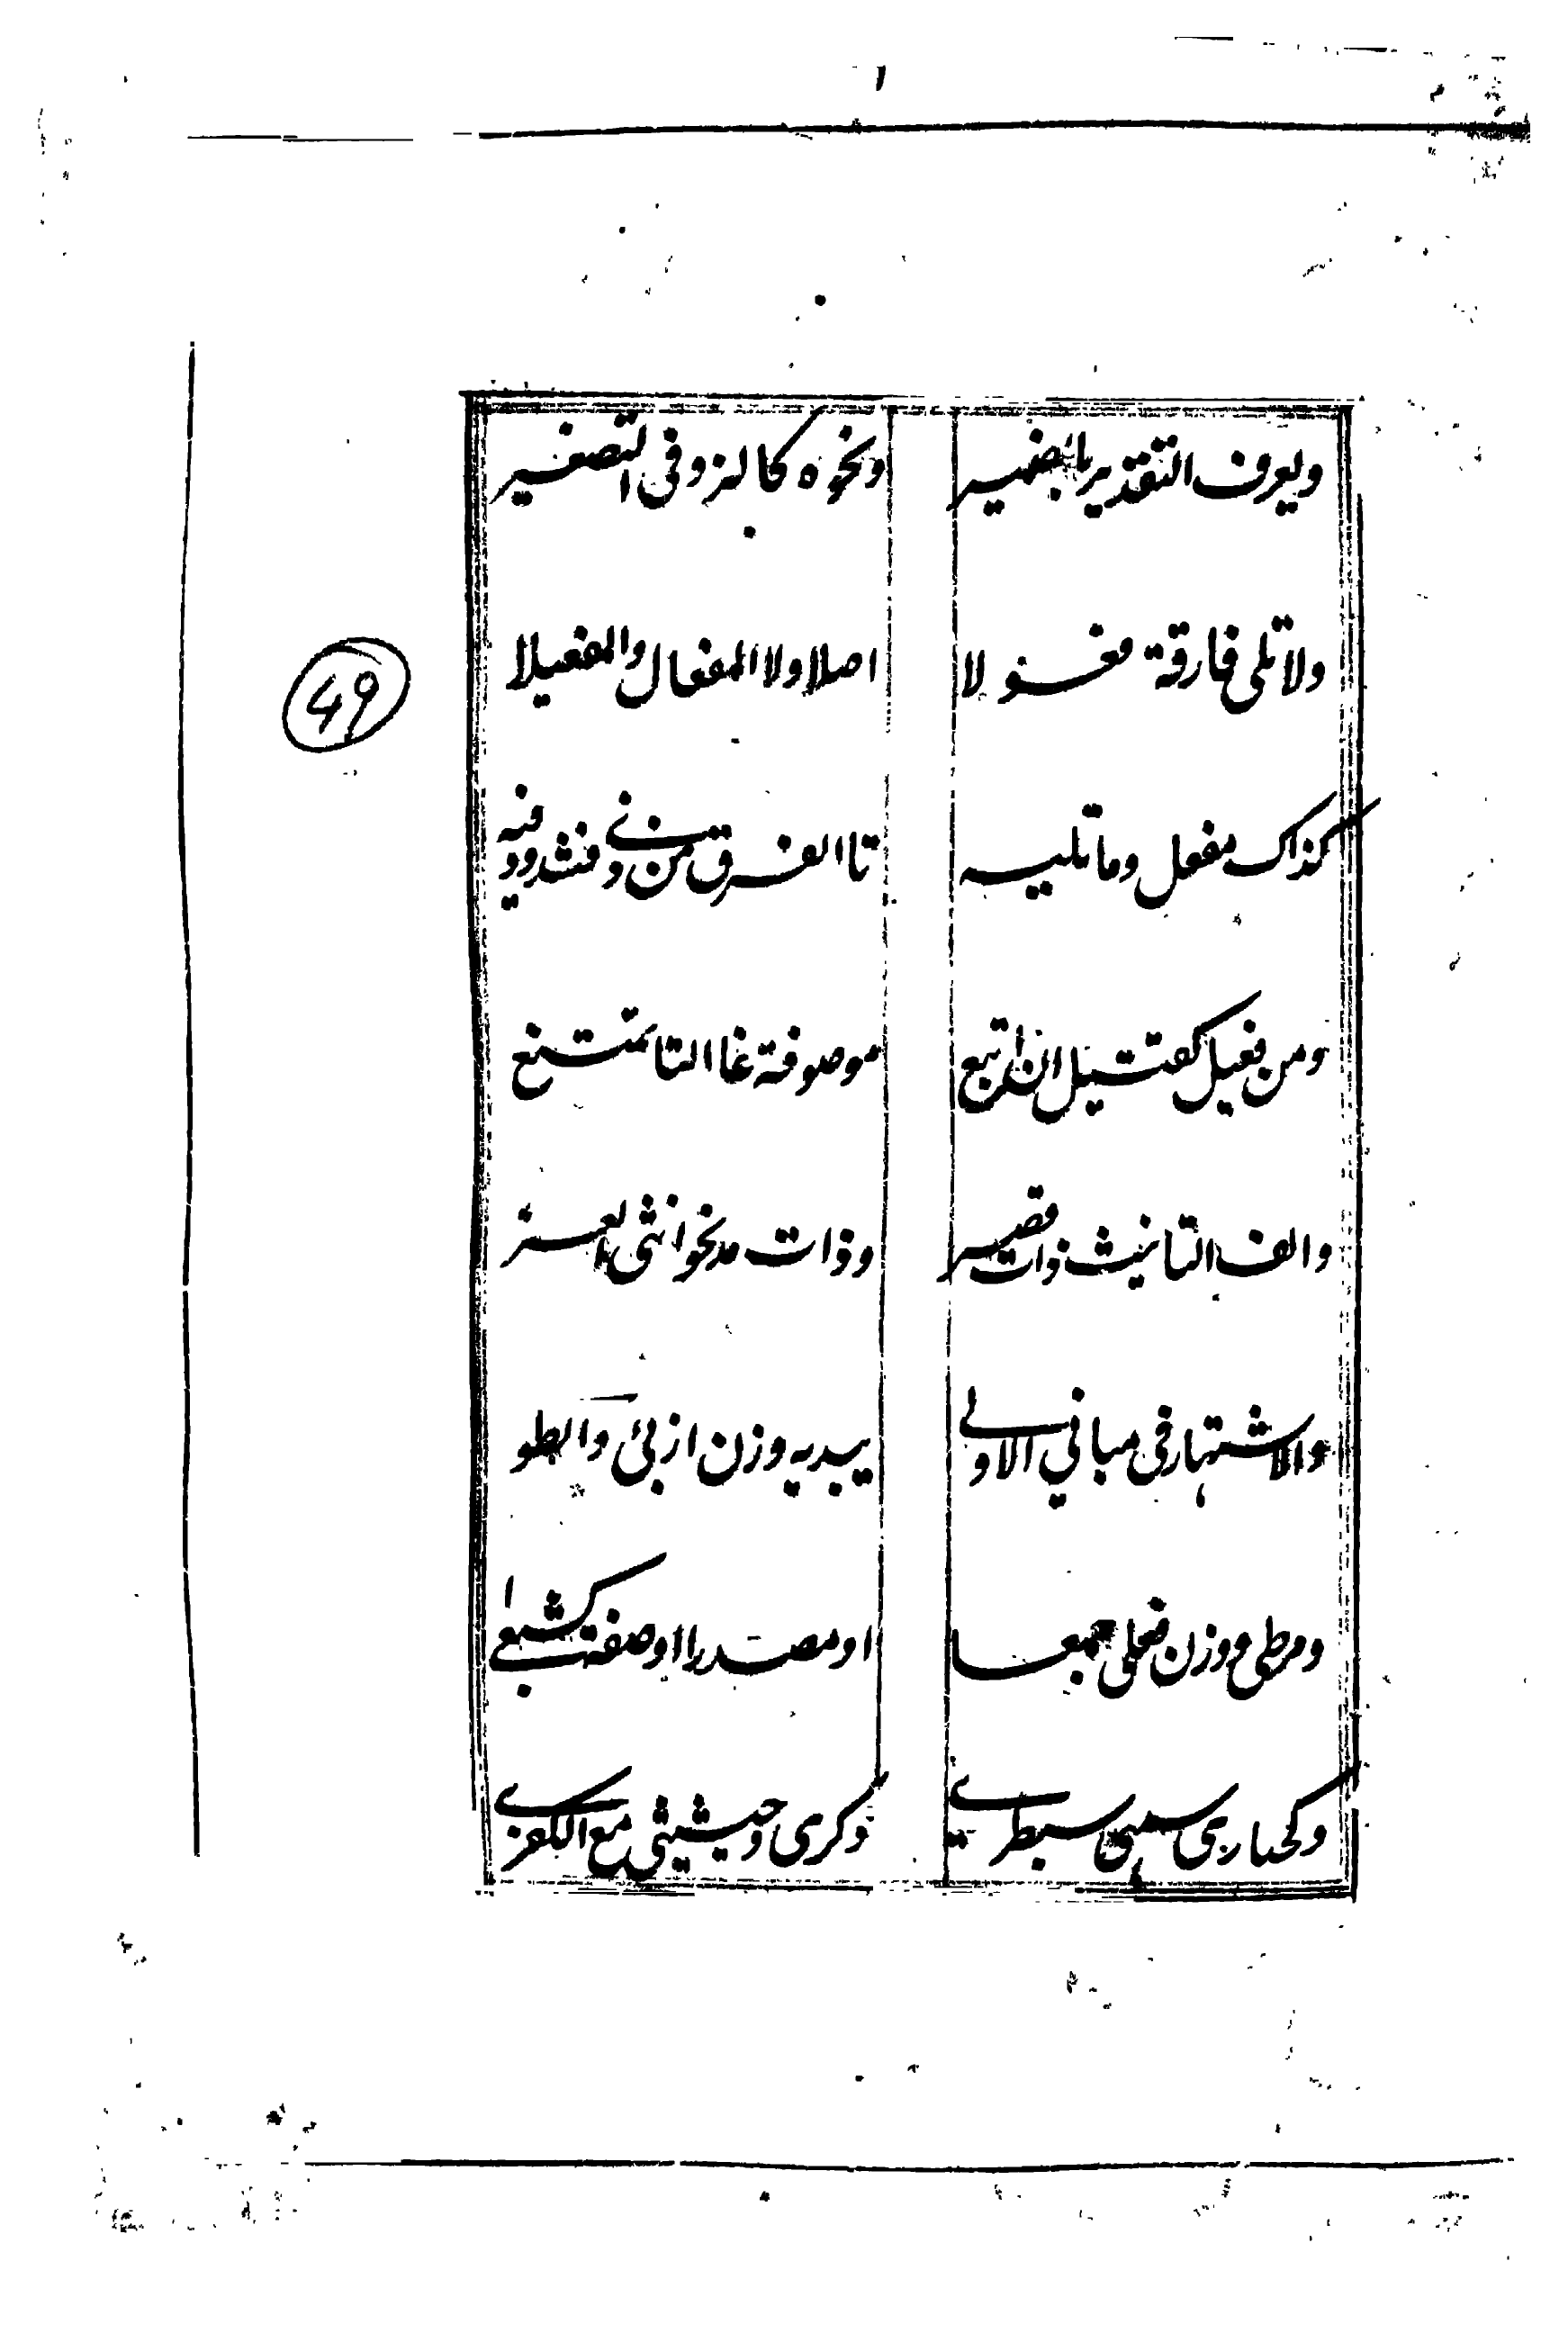 ويعرف التقدير بالضمير ونحوه كالرد في التصغير
ولا تلى فارقة فعولا اصلا ولا المفعال والمفعيلا
كذاك مفعل وما تليه تا الفرق من ذي فشذوذ فيه
ومن فعيل كقتيل ان تبع موصوفه غالبا التا تمتنع
والف التانيث ذات قصر وذات مد نحو انثى الغر
والاشتهار في مباني الاولى يبديه وزن اربى والطولى
ومرطى ووزن فعلى جمعا او مصدرا او صفة كشبعى
وكحبارى سمهى سبطرى ذكرى وحثيثى مع الكفرى
49